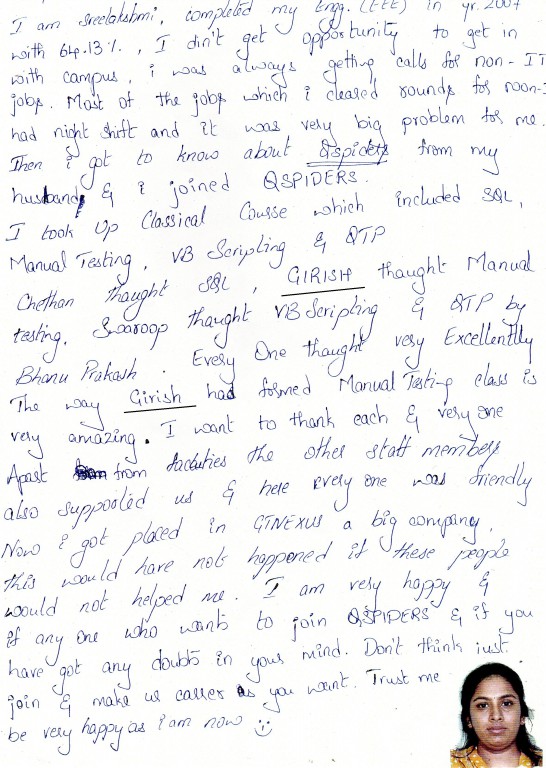 I am sreelakshmi, completed my Engg. (EEE) in yr. 2007
with 64.13%. , I din't get opportunity to get in
with campus, i was always getting calls for non-IT
jobs. Most of the jobs which i cleared rounds for non-I
had night shift and it was very big problem for me.
Then i got to know about Qspiders from my
husband & i joined QSPIDERS.
I took up Classical Course which included SQL,
Manual Testing, VB Scripting & QTP
Chethan thaught SQL, GIRISH thaught Manual
testing, Swaroop thaught VB Scripting & QTP by
Bhanu Prakash. Every One thaught very Excellentlly
The way Girish had formed Manual Testing class is
very amazing. I want to thank each & very one
Apart from faculties the other staff members
also supported us & here every one was friendly
Now i got placed in GTNEXUS a big company,
this would have not happened if these people
would not helped me. I am very happy &
if any one who wants to join QSPIDERS & if you
have got any doubts in your mind. Don't think just
join & make ur career as you want. Trust me
be very happy as i am now